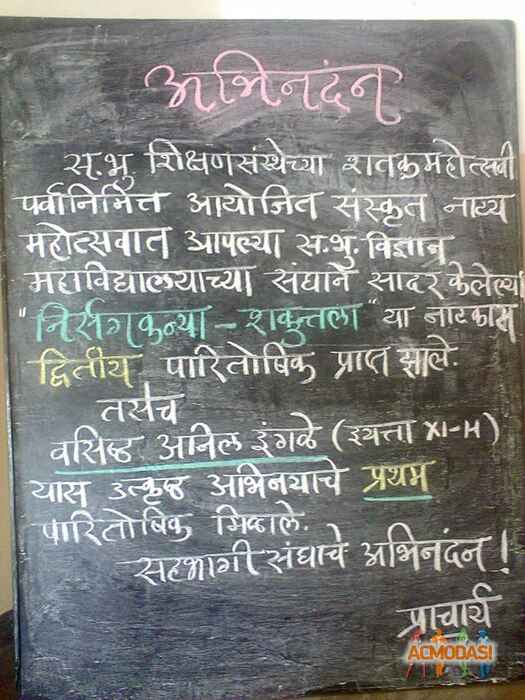 अभिनंदन
स.भु. शिक्षणसंस्थेच्या शतकमहोत्सवी
पर्वानिमित्त आयोजित संस्कृत नाट्य
महोत्सवात आपल्या स.भु. विज्ञान
महाविद्यालयाच्या संघाने सादर केलेल्या
"निर्सगकन्या – शकुन्तला" या नाटकास
द्वितीय पारितोषिक प्राप्त झाले.
तसेच
वसिष्ठ अनिल इंगळे (इयत्ता XI-H)
यास उत्कृष्ठ अभिनयाचे प्रथम
पारितोषिक मिळाले.
सहभागी संघाचे अभिनंदन!
प्राचार्य
ACMODASI